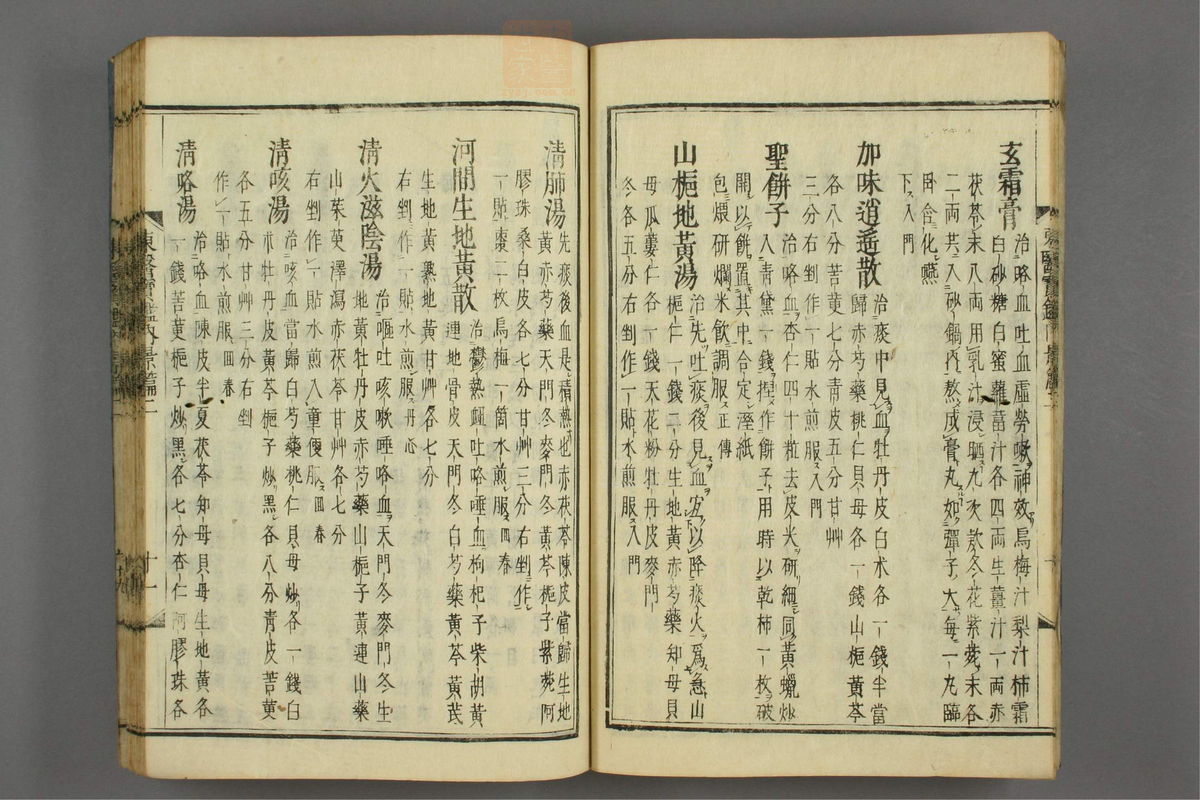 玄霜膏 治咯血吐血虛勞嗽神效烏梅汁梨汁柿霜
白砂糖白蜜蘿葍汁各四兩生薑汁一兩赤
茯苓末八兩用乳汁浸晒九次款冬花紫菀末各
二兩共入砂鍋內熬成膏丸如彈子大每一丸臨
臥含化嚥
下入門
加味逍遙散 治痰中見血牡丹皮白朮各一錢半當
歸赤芍藥桃仁貝母各一錢山梔黃芩
各八分苦䓯七分靑皮五分甘艸
三分右剉作一貼水煎服入門
聖餠子 治咯血杏仁四十粒去皮尖硏細同黃蠟炒
入靑黛一錢捏作餠子用時以乾柿一枚破
開以餠置其中合定溼紙
包煨硏爛米飮調服正傳
山梔地黃湯 治先吐痰後見血宜以降痰火爲急山
梔仁一錢二分生地黃赤芍藥知母貝
母瓜蔞仁各一錢天花粉牡丹皮麥門
冬各五分右剉作一貼水煎服入門
淸肺湯 先痰後血是積熱也赤茯苓陳皮當歸生地
黃赤芍藥天門冬麥門冬黃芩梔子紫菀阿
膠珠桑白皮各七分甘艸三分右剉作
一貼棗二枚烏梅一箇水煎服回春
河間生地黃散 治鬱熱衄吐咯唾血枸杞子柴胡黃
連地骨皮天門冬白芍藥黃芩黃芪
生地黃熟地黃甘艸各七分
右剉作一貼水煎服丹心
淸火滋陰湯 治嘔吐咳嗽唾咯血天門冬麥門冬生
地黃牡丹皮赤芍藥山梔子黃連山藥
山茱萸澤瀉赤茯苓甘艸各七分
右剉作一貼水煎入童便服回春
淸咳湯 治咳血當歸白芍藥桃仁貝母炒各一錢白
朮牡丹皮黃芩梔子炒黑各八分靑皮苦䓯
各五分甘艸三分右剉
作一貼水煎服回春
淸咯湯 治咯血陳皮半夏茯苓知母貝母生地黃各
一錢苦䓯梔子炒黑各七分杏仁阿膠珠各
東醫寶鑑內景篇二
十一